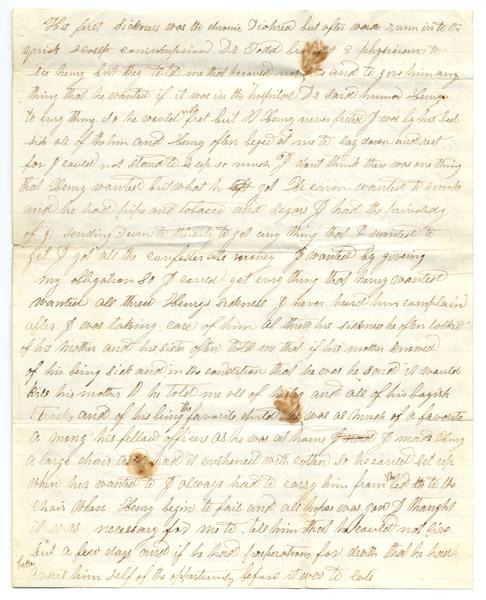 His first sickness was the chronic Diahrea but after ward rum in to the
quick consumption Dr Todd brought 3 physicians to
see heny but they told me that he could not and to give him any
thing that he wanted if it was in the hospital Dr said humor Heny
to evry thing so he would not fret but H Heny never freted I was by his bed
side all of the tim and Heny often beged at me to lay down and rest
for I could not stand to be up so much I dont think there was one thing
that Heny wanted but what he got He eaven wanted to smoke
and he had pipe and tobacco and segars I had the priviledg
of g sending down to to get any thing that I wanted to
get I got all the confederate money I wanted by giveing
my obligation so I could get evry thing that heny wanted
wanted all threw Henys sickness I never heard him complain
after I was taking care of him al threw his sickness he often talked
of his Mother and his sister often told me that if his mother knowed
of his being sick and in the condition that he was he said it would
kill his mother H he told me all of and all of his boyish
tricks and of his being the favorite child he was as much of a favorite
a mong his fellow officers as he was at home I made heny
a large chair and it cushened with cotton so he could set up
when he wanted to I always had to carry him from his bed to the
chair When Heny begin to fail and all hopes was gon I thought
it was necessary for me to tell him that he could not live
but a few days and if he had preperations for death that he had
better avail him self of the opportunity before it was to late